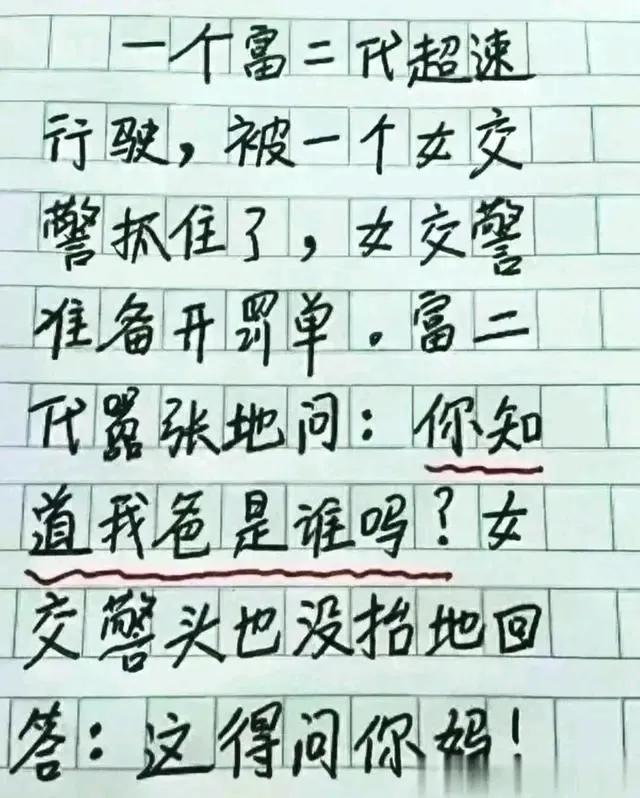 一个富二代超速
行驶，被一个女交
警抓住了，女交警
准备开罚单。富二
代嚣张地问：你知
道我爸是谁吗？女
交警头也没抬地回
答：这得问你妈！